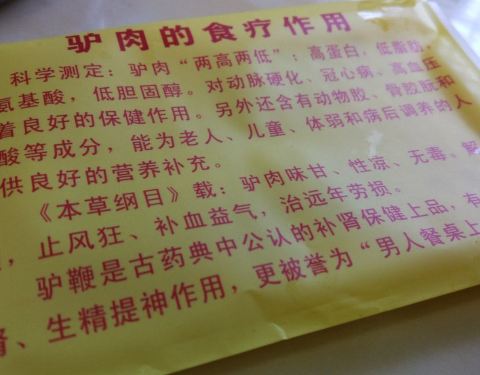 驴肉的食疗作用
科学测定：驴肉“两高两低”：高蛋白，低脂肪，
氨基酸，低胆固醇。对动脉硬化、冠心病、高血压
着良好的保健作用。另外还含有动物胶、骨胶朊和
酸等成分，能为老人、儿童、体弱和病后调养的人
供良好的营养补充。
《本草纲目》载：驴肉味甘、性凉、无毒。解
，止风狂、补血益气，治远年劳损。
驴鞭是古药典中公认的补肾保健上品，有
肾、生精提神作用，更被誉为“男人餐桌上